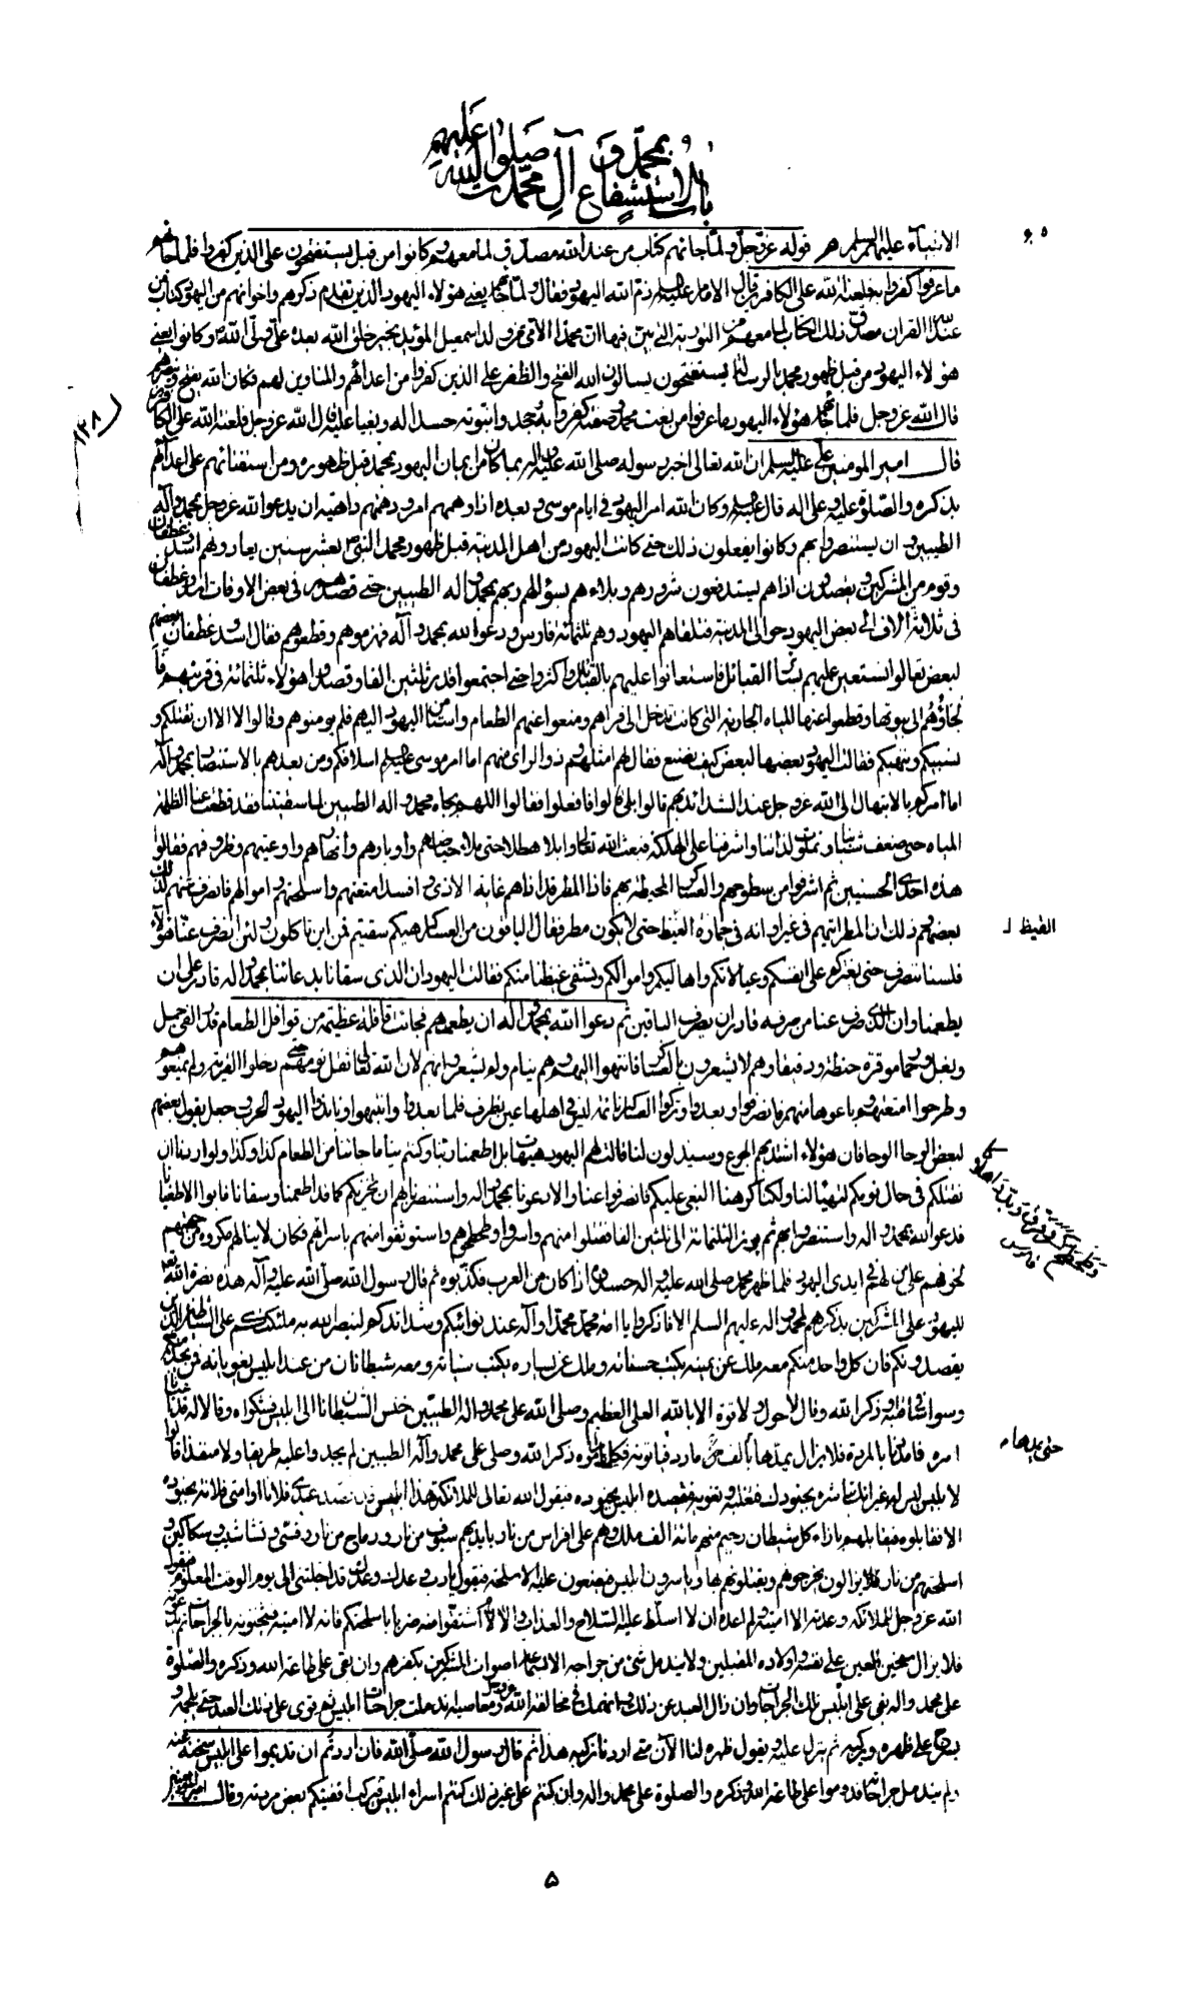 باب الاستشفاع بمحمد و آل محمد صلوات الله عليهم
الانبياء عليهم السلم قوله عز وجل ولما جائهم كتاب من عند الله مصدق لما معهم وكانوا من قبل يستفتحون على الذين كفروا فلما جائهم
ما عرفوا كفروا به فلعنة الله على الكافرين قال الامام عليه السلم ذم الله اليهود فقال ولما جائهم يعنى هؤلاء اليهود الذين تقدم ذكرهم واخوانهم من اليهود كتاب من
عند الله القران مصدق ذلك الكتاب لما معهم من التورية التى بين فيها ان محمدا الامى من ولد اسمعيل المؤيد بخير خلق الله بعده على ولى الله وكانوا يعنى
هؤلاء اليهود من قبل ظهور محمد بالرسالة يستفتحون يسالون الله الفتح والظفر على الذين كفروا من اعدائهم والمناوين لهم فكان الله يفتح وينصرهم
قال الله عز وجل فلما جائهم هؤلاء اليهود ما عرفوا من نعت محمد وصفته كفروا به وجحدوا نبوته حسدا له وبغيا عليه قال الله عز وجل فلعنة الله على الكافرين
قال امير المومنين على عليه السلم ان الله تعالى اخبر رسوله صلى الله عليه واله بما كان من ايمان اليهود بمحمد قبل ظهوره ومن استفتاحهم على اعدائهم
بذكره والصلوة عليه وعلى اله قال عليه السلم وكان الله امر اليهود فى ايام موسى وبعده اذا دهمهم امر ودهتهم داهية ان يدعوا الله عز وجل بمحمد وآله
الطيبين وان يستنصروا بهم وكانوا يفعلون ذلك حتى كانت اليهود من اهل المدينة قبل ظهور محمد النبى بعشر سنين يعاديهم اسد وغطفان
وقوم من المشركين ويقصدون اذاهم يستدفعون شرورهم وبلاءهم بسؤالهم ربهم بمحمد واله الطيبين حتى قصدهم فى بعض الاوقات اسد وغطفان
فى ثلاثة الاف الى بعض اليهود حوالى المدينة فتلقاهم اليهود وهم ثلثمائة فارس ودعوا الله بمحمد وآله فهزموهم وقطعوهم فقال اسد وغطفان بعضهم
لبعض تعالوا نستعين عليهم بسائر القبائل فاستعانوا عليهم بالقبائل واكثروا حتى اجتمعوا قدر ثلثين الفا وقصدوا هؤلاء ثلثمائة فى قريتهم
فالجاؤهم الى بيوتها وقطعوا عنها المياه الجارية التى كانت تدخل الى قراهم ومنعوا عنهم الطعام واستامن اليهود اليهم فلم يومنوهم وقالوا لا الا ان نقتلكم و
نسبيكم وننهبكم فقالت اليهود بعضها لبعض كيف نصنع فقال لهم امثلهم وذو الراى منهم اما امر موسى عليه السلم اسلافكم ومن بعدهم بالاستنصار بمحمد وآله
اما امركم بالابتهال الى الله عز وجل عند الشدائد بهم قالوا بلى قالوا فافعلوا فقالوا اللهم بجاه محمد واله الطيبين لما سقيتنا فقد قطعت عنا الظلمة
المياه حتى ضعف شباننا وتماوت ولداننا واشرفنا على الهلكة فبعث الله تعالى وابلا هطلا حتى ملا حياضهم وابارهم وانهارهم واوعيتهم وظروفهم فقالوا
هذه احدى الحسنيين ثم اشرفوا من سطوحهم والعساكر المحيطة بهم فاذا المطر قد اذاهم غاية الاذى وافسد امتعتهم واسلحتهم واموالهم فانصرف عنهم لذلك
بعضهم وذلك ان المطر اتيهم فى غير اوانه فى حمارة القيظ حتى لا يكون مطر فقال الباقون من العساكر هبكم سقيتم فمن اين تاكلون ولئن انصرف عنكم هؤلاء
فلسنا ننصرف حتى نقهركم على انفسكم وعيالاتكم واهاليكم واموالكم ونشفى غيظنا منكم فقالت اليهود ان الذى سقانا بدعائنا بمحمد واله قادر على ان
يطعمنا وان الذى صرف عنا من صرفه قادر ان يصرف الباقين ثم دعوا الله بمحمد واله ان يطعمهم فجائت قافلة عظيمة من قوافل الطعام قدر الفى جمل
وبغل وحمار موقرة حنطة ودقيقا وهم لا يشعرون بالعساكر فانتهوا اليهم وهم نيام ولم يشعروا بهم لان الله تعالى ثقل نومهم حتى دخلوا القرية ولم يمنعوهم
وطرحوا امتعتهم وباعوها منهم فانصرفوا وبعدوا وتركوا العساكر نائمة ليس فى اهلها عين تطرف فلما بعدوا وانتبهوا ونابذوا اليهود الحرب جعل يقول بعضهم
لبعض الوحا الوحا فان هؤلاء اشتد بهم الجوع وسيذلون لنا قالت لهم اليهود هيهات بل اطعمنا ربنا وكنتم نياما جائنا من الطعام كذا وكذا ولو اردنا ان
نقتلكم فى حال نومكم لتهيا لنا ولكنا كرهنا البغى عليكم فانصرفوا عنا والا دعونا بمحمد واله واستنصرنا بهم ان يخزيكم كما قد اطعمنا وسقانا فابوا الا طغيانا
فدعوا الله بمحمد واله واستنصروا بهم ثم برز الثلثمائة الى ثلثين الفا فقتلوا منهم واسروا وطحطحوهم واستوثقوا منهم باسرائهم فكان لا ينالهم مكروه من جهتهم
لخوفهم على من لهم فى ايدى اليهود فلما ظهر محمد صلى الله عليه واله حسدوه اذ كان من العرب فكذبوه ثم قال رسول الله صلى الله عليه وآله هذه نصرة الله تعالى
لليهود على المشركين بذكرهم لمحمد واله عليهم السلم الا فاذكروا يا امة محمد محمدا وآله عند نوائبكم وشدائدكم لينصر الله به ملئكتكم على الشياطين الذين
يقصدونكم فان كل واحد منكم معه ملك عن يمينه يكتب حسناته وملك عن يساره يكتب سيئاته ومعه شيطانان من عند ابليس يغويانه فمن يجد منكم
وسواسا فى قلبه وذكر الله وقال لا حول ولا قوة الا بالله العلى العظيم وصلى الله على محمد واله الطيبين خنس الشيطانان الى ابليس فشكواه وقالا له قد اعيانا
امره فامددنا بالمردة فلا يزال يمدهما بالف مارد فياتونه فكلما راموه ذكر الله وصلى على محمد وآله الطيبين لم يجدوا عليه طريقا ولا منفذا قالوا
لابليس ليس له غيرك تباشره بجنودك فتغلبه وتغويه فيقصده ابليس بجنوده فيقول الله تعالى للملائكة هذا ابليس قد قصد عبدى فلانا او امتى فلانة بجنوده
الا فقاتلوه فيقاتلهم بازاء كل شيطان رجيم منهم مائة الف ملك وهم على افراس من نار بايديهم سيوف من نار ورماح من نار وقسى ونشاشيب وسكاكين و
اسلحتهم من نار فلا يزالون يخرجوهم ويقتلونهم بها وياسرون ابليس فيضعون عليه الاسلحة فيقول يا رب وعدك وعدك قد اجلتنى الى يوم الوقت المعلوم فيقول
الله عز وجل للملائكة وعدته الا اميته ولم اعده ان لا اسلط عليه السلاح والعذاب والالام اشتفوا منه ضربا باسلحتكم فانه لا اميته فيثخنونه بالجراحات ثم يدعونه
فلا يزال سخين العين على نفسه واولاده المقتلين ولا يندمل شئ من جراحه الا بسماعه اصوات المشركين بكفرهم وان بقى على طاعة الله وذكره والصلوة
على محمد واله بقى على ابليس تلك الجراحات وان زال العبد عن ذلك وانهمك فى مخالفة الله عز وجل ومعاصيه اندملت جراحات ابليس ثم قوى على ذلك العبد حتى يلجمه و
يسرج على ظهره ويركبه ثم ينزل عليه ويقول ظهره لنا الآن متى اردنا نركبه هذا ثم قال رسول الله صلى الله فان اردتم ان تديموا على ابليس سخنة عينه
والم جراحاته فدوموا على طاعة الله وذكره والصلوة على محمد واله وان كنتم على غير ذلك كنتم اسراء ابليس فيركب اقفيتكم بعض مردته وقال امير المومنين
القيظ
حتى يمدهما
۵